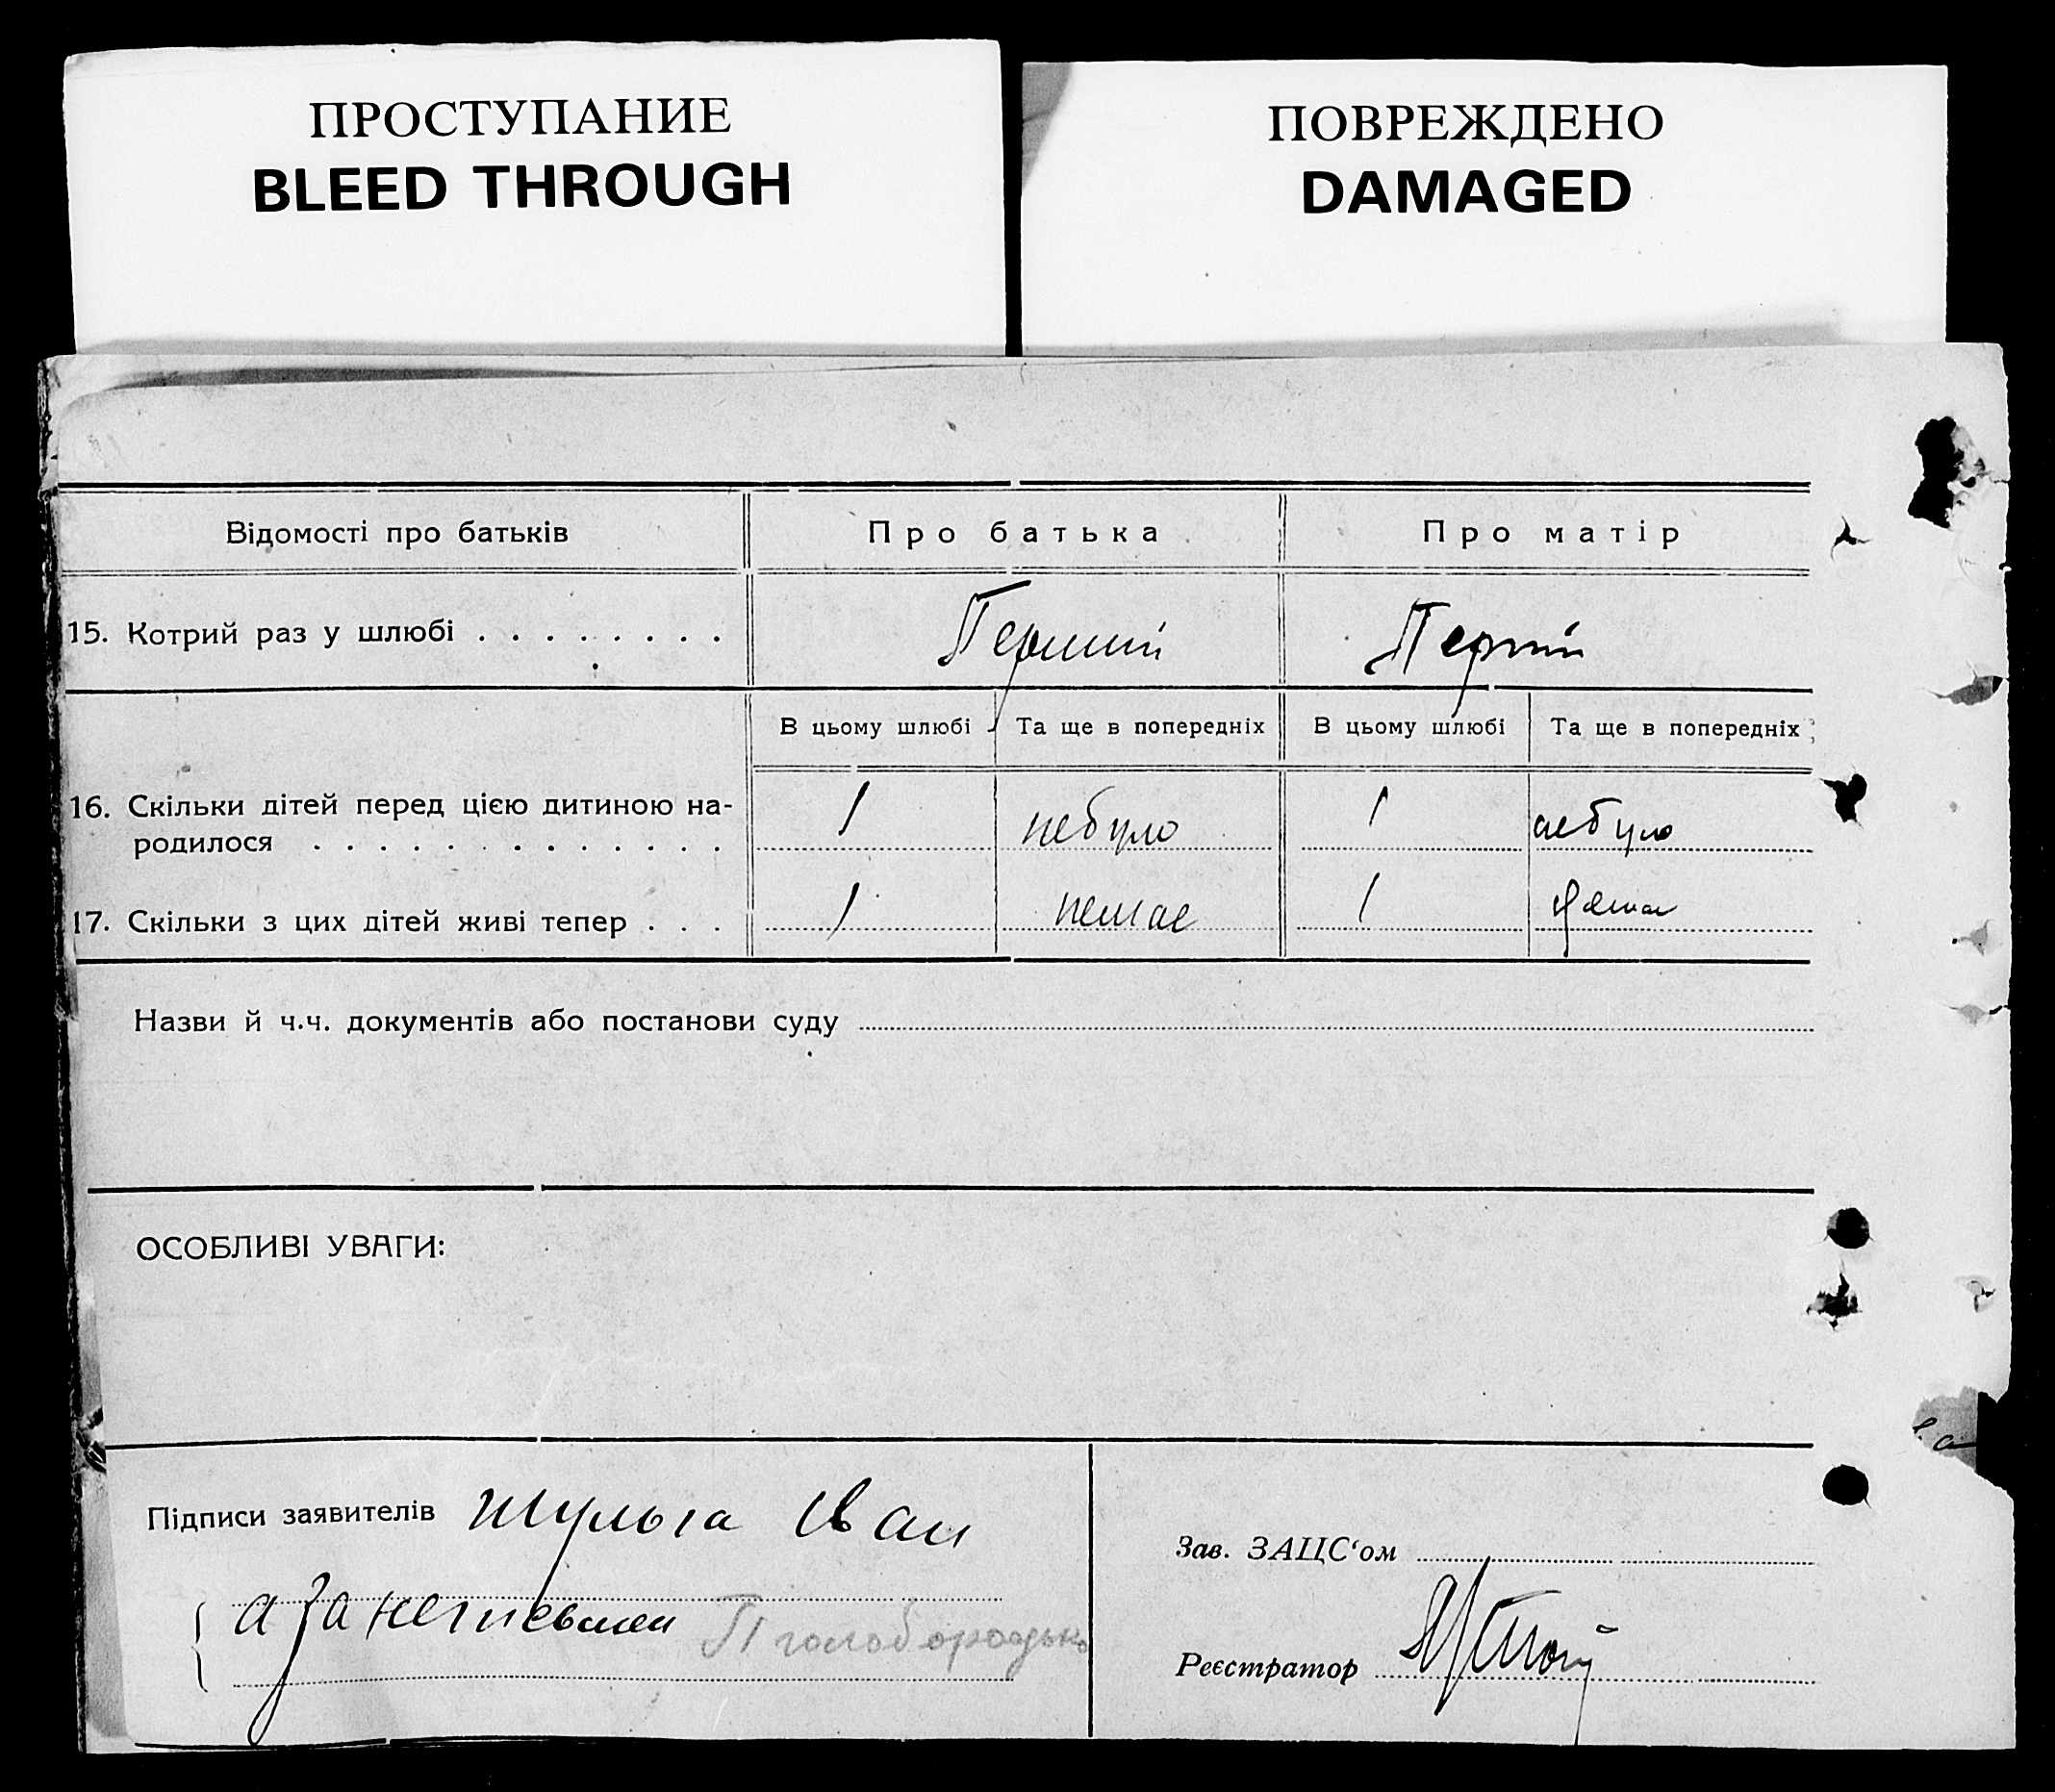 ПРОСТУПАНИЕ
BLEED THROUGH
ПОВРЕЖДЕНО
DAMAGED
Відомості про батьків
Про батька
Про матір
15. Котрий раз у шлюбі
Перший
Перший
В цьому шлюбі
Та ще в попередніх
В цьому шлюбі
Та ще в попередніх
16. Скільки дітей перед цією дитиною на-
родилося
1
небуло
1
небуло
17. Скільки з цих дітей живі тепер
1
немає
1
Назви й ч.ч. документів або постанови суду
ОСОБЛИВІ УВАГИ:
Підписи заявителів Шульга Иван
а за негр
П голобородько
Зав. ЗАЦС‘ом
Реєстратор